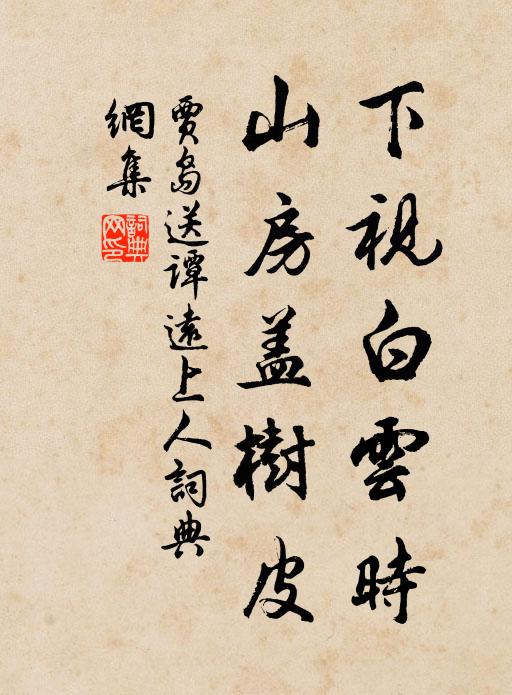 下視白雲時
山房蓋樹皮
賈島送譚遠上人詞典
網集
詞典網印